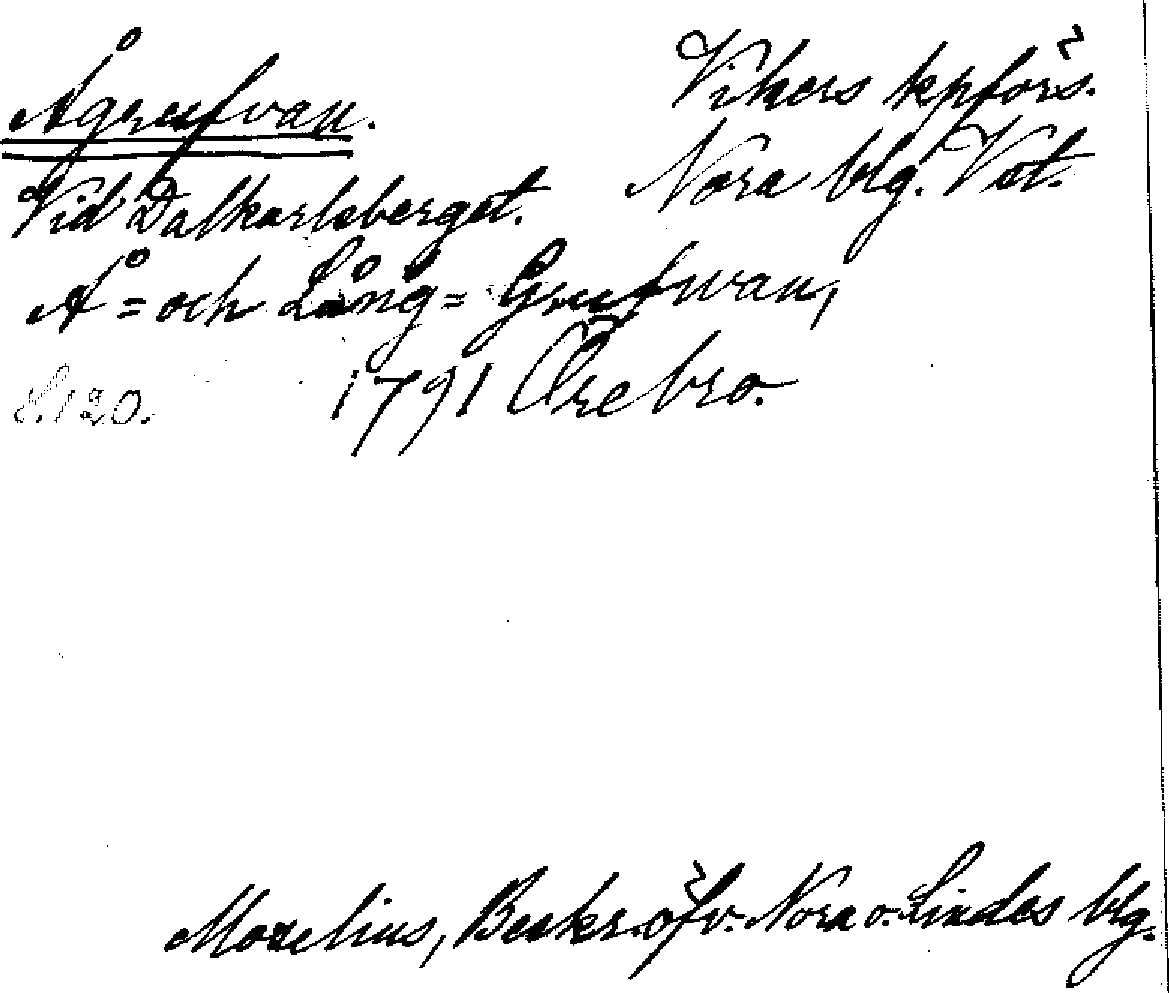 Ågrufvan.
Vikers kpförs.
Nora blg. Vst.
Vid Dalkarlsberget.
Å = och Lång = Grufwan,
S. 120. 1791 Örebro.
Morelius, Beskr. öfv. Nora o. Lindes blg.